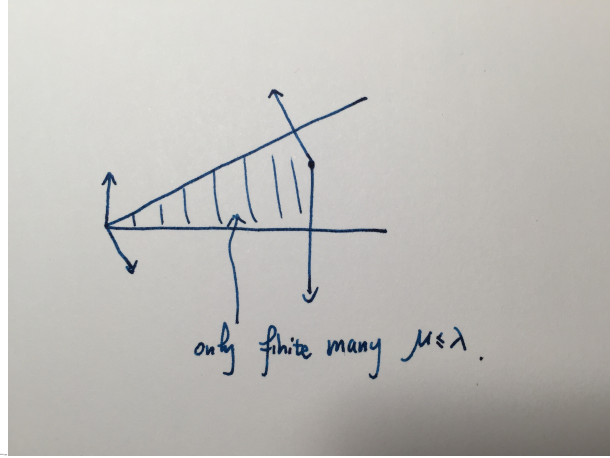 only finite many μ≤λ.